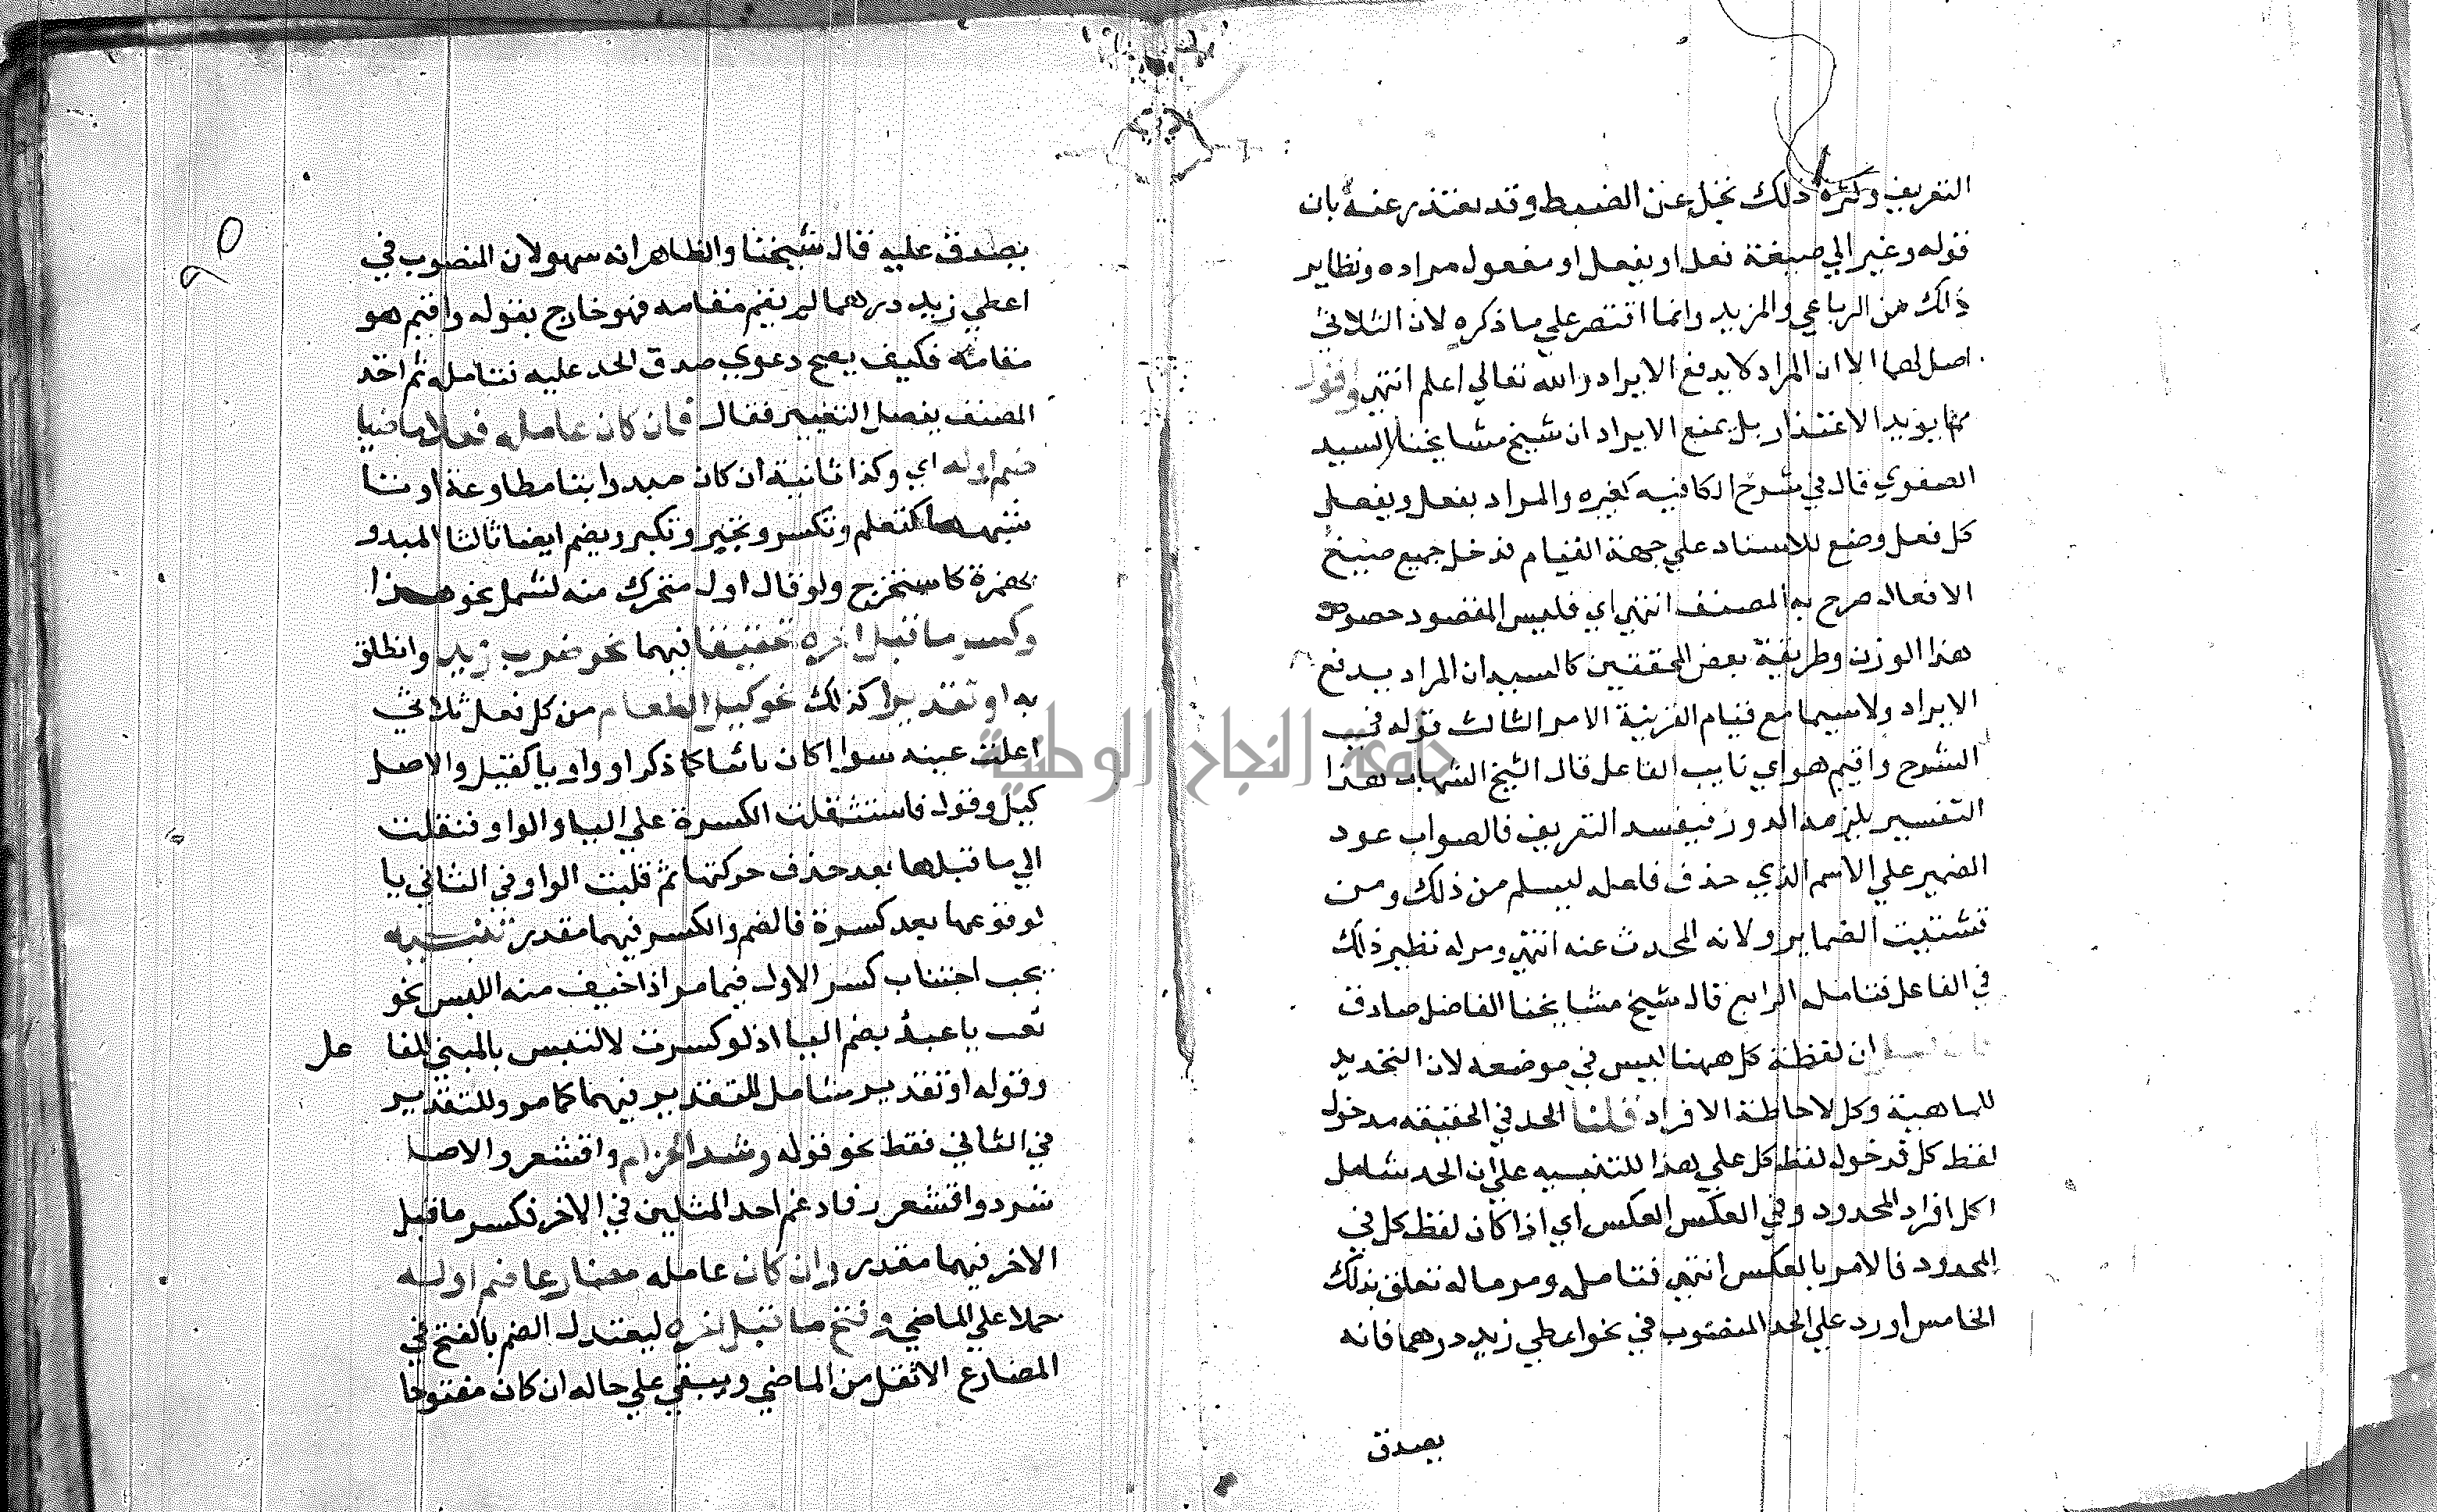 التعريف وكثرة ذلك تخل عن الضبط وقد يعتذر عنه بان
قوله وغير الي صيغة فعل او يفعل او مفعول مراده ونظاير
ذلك من الرباعي والمزيد وانما اقتصر علي ما ذكره لان الثلاثي
اصل لهما الا ان المراد لا يدفع الايراد والله تعالي اعلم انتهي وقوله
مما يويد الاعتذار بل يمنع الايراد ان شيخ مشايخنا السيد
الصفوي قال في شرح الكافيه كغيره والمراد بفعل ويفعل
كل فعل وضع للاسناد علي جهة القيام فدخل جميع صيغ
الافعال صرح به المصنف انتهي اي فليس المقصود خصوص
هذا الوزن وطريقة بعض المحققين كالسيد ان المراد يدفع
الايراد ولاسيما مع قيام القرينة الامر الثالث قوله في
الشرح واقيم هو اي نايب الفاعل قال الشيخ الشهاب هذا
التفسير يلزمه الدور فيفسد التعريف فالصواب عود
الضمير علي الاسم الذي حذف فاعله ليسلم من ذلك ومن
تشتيت الضماير ولانه المحدث عنه انتهي ومر له نظير ذلك
في الفاعل فتامله الرابع قال شيخ مشايخنا الفاضل صادق
فان قيل ان لفظة كل ههنا ليس في موضعه لان التحديد
للماهية وكل لاحاطة الافراد قلنا الحد في الحقيقه مدخول
لفظ كل فدخول لفظ كل علي هذا للتنبيه علي ان الحد شامل
لكل افراد المحدود وفي العكس العكس اي اذا كان لفظ كل في
المحدود فالامر بالعكس انتهي فتامله ومر ماله تعلق بذلك
الخامس اورد علي الحد المنصوب في نحو اعطي زيد درهما فانه
يصدق
٩٥
يصدق عليه قال شيخنا والظاهر انه سهو لان المنصوب في
اعطي زيد درهما لم يقم مقامه فهو خارج بقوله واقيم هو
مقامه فكيف يصح دعوي صدق الحد عليه فتامله ثم اخذ
المصنف يفصل التغيير فقال فان كان عامله فعلا ماضيا
ضم اوله اي وكذا ثانية ان كان مبدوا بتا مطاوعة او بتا
شبهها كتعلم وتكسر وتجبر وتكبر ويضم ايضا ثالثا المبدو
بهمزة كاستخرج ولو قال اول متحرك منه لشمل نحو هذا
وكسر ما قبل اخره تحقيقا فيهما نحو ضرب زيد وانطلق
به او تقديرا كذلك نحو كيل الطعام من كل فعل ثلاثي
اعلت عينه سوا كان يائيا كما ذكر او واويا كقيل والاصل
كيل وقول فاستثقلت الكسرة علي اليا والواو فنقلت
الي ما قبلها بعد حذف حركتها ثم قلبت الواو في الثاني يا
لوقوعها بعد كسرة فالضم والكسر فيهما مقدر تنبيه
يجب اجتناب كسر الاول فيما مر اذا خيف منه اللبس نحو
بعت يا عبد بضم البا اذ لو كسرت لالتبس بالمبني للفا عل
وقوله او تقديرا شامل للتقدير فيهما كما مر وللتقدير
في الثاني فقط نحو قوله وشد الحزام واقشعر والاصل
شدد واقشعرر فادغم احد المثلين في الاخر فكسر ما قبل
الاخر فيهما مقدر وان كان عامله مضارعا ضم اوله
حملا علي الماضي وفتح ما قبل اخره ليعتدل الضم بالفتح في
المضارع الاثقل من الماضي ويبقي علي حاله ان كان مفتوحا
جامعة النجاح الوطنية